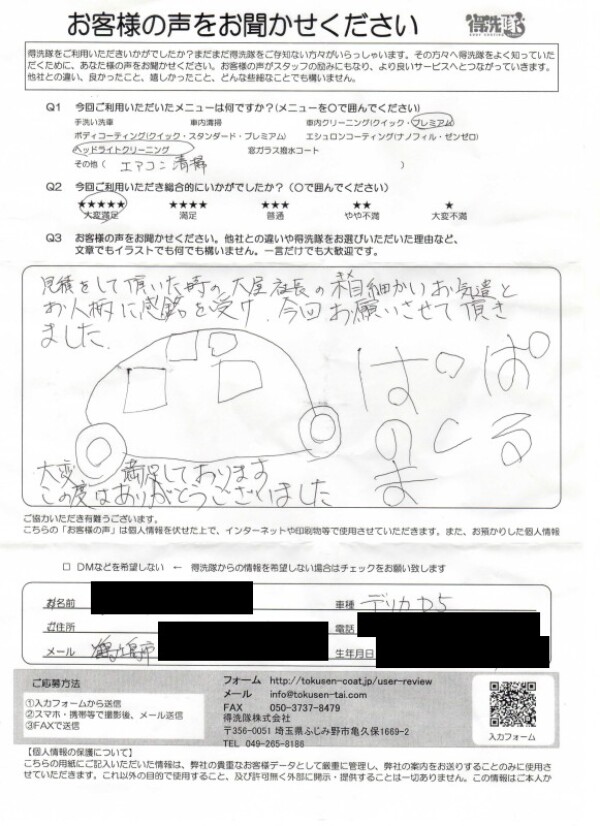 お客様の声をお聞かせください
得洗隊
得洗隊をご利用いただきいかがでしたか?まだまだ得洗隊をご存知ない方々がいらっしゃいます。その方々へ得洗隊をよく知っていただくために、あなた様の声をお聞かせください。お客様の声がスタッフの励みにもなり、より良いサービスへとつながっていきます。
他社との違い、良かったこと、嬉しかったこと、どんな些細なことでも構いません。
Q1 今回ご利用いただいたメニューは何ですか?(メニューを〇で囲んでください)
手洗い洗車 車内清掃 車内クリーニング(クイック・プレミアム)
ボディコーティング(クイック・スタンダード・プレミアム) エシュロンコーティング(ナノフィル・ゼンゼロ)
ヘッドライトクリーニング 窓ガラス撥水コート
その他( エアコン清掃 )
Q2 今回ご利用いただき総合的にいかがでしたか?(〇で囲んでください)
★★★★★ ★★★★ ★★★ ★★ ★
大変満足 満足 普通 やや不満 大変不満
Q3 お客様の声をお聞かせください。他社との違いや得洗隊をお選びいただいた理由など、
文章でもイラストでも何でも構いません。一言だけでも大歓迎です。
見積をして頂いた時の大屋社長の細かいお気遣と
お人柄に感銘を受け、今回お願いさせて頂き
ました。
ぱぱ
のくる
ま
大変 満足しております
この度はありがとうございました
ご協力いただき有難うございます。
こちらの「お客様の声」は個人情報を伏せた上で、インターネットや印刷物等で使用させていただきます。また、お預かりした個人情報
□ DMなどを希望しない ← 得洗隊からの情報を希望しない場合はチェックをお願い致します
お名前 車種 デリカD5
ご住所 電話
メール 鶴ヶ島市 生年月日
ご応募方法
①入力フォームから送信
②スマホ・携帯等で撮影後、メール送信
③FAXで送信
フォーム http://tokusen-coat.jp/user-review
メール info@tokusen-tai.com
FAX 050-3737-8479
得洗隊株式会社
〒356-0051 埼玉県ふじみ野市亀久保1669-2
TEL 049-265-8186
入力フォーム
【個人情報の保護について】
こちらの用紙にご記入いただいた情報は、弊社の貴重なお客様データとして厳重に管理し、弊社の案内をお送りすることのみに使用させていただきます。これ以外の目的で使用すること、及び許可無く外部に開示・提供することは一切ありません。この情報はご本人か